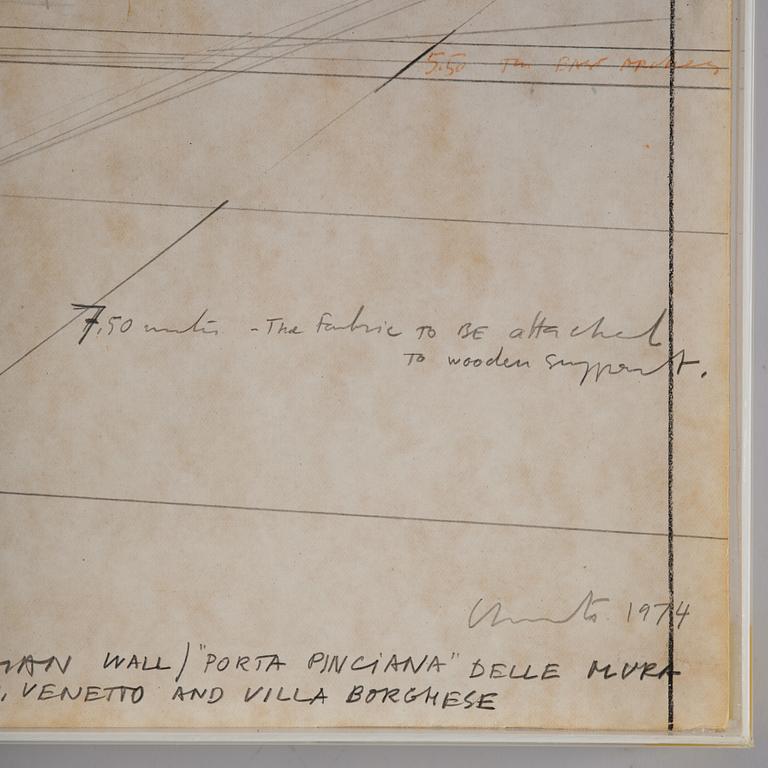 5.50
7.50 meters - The Fabric TO BE attached
TO wooden support.
Christo 1974
MAN WALL) "PORTA PINCIANA" DELLE MURA
. VENETTO AND VILLA BORGHESE